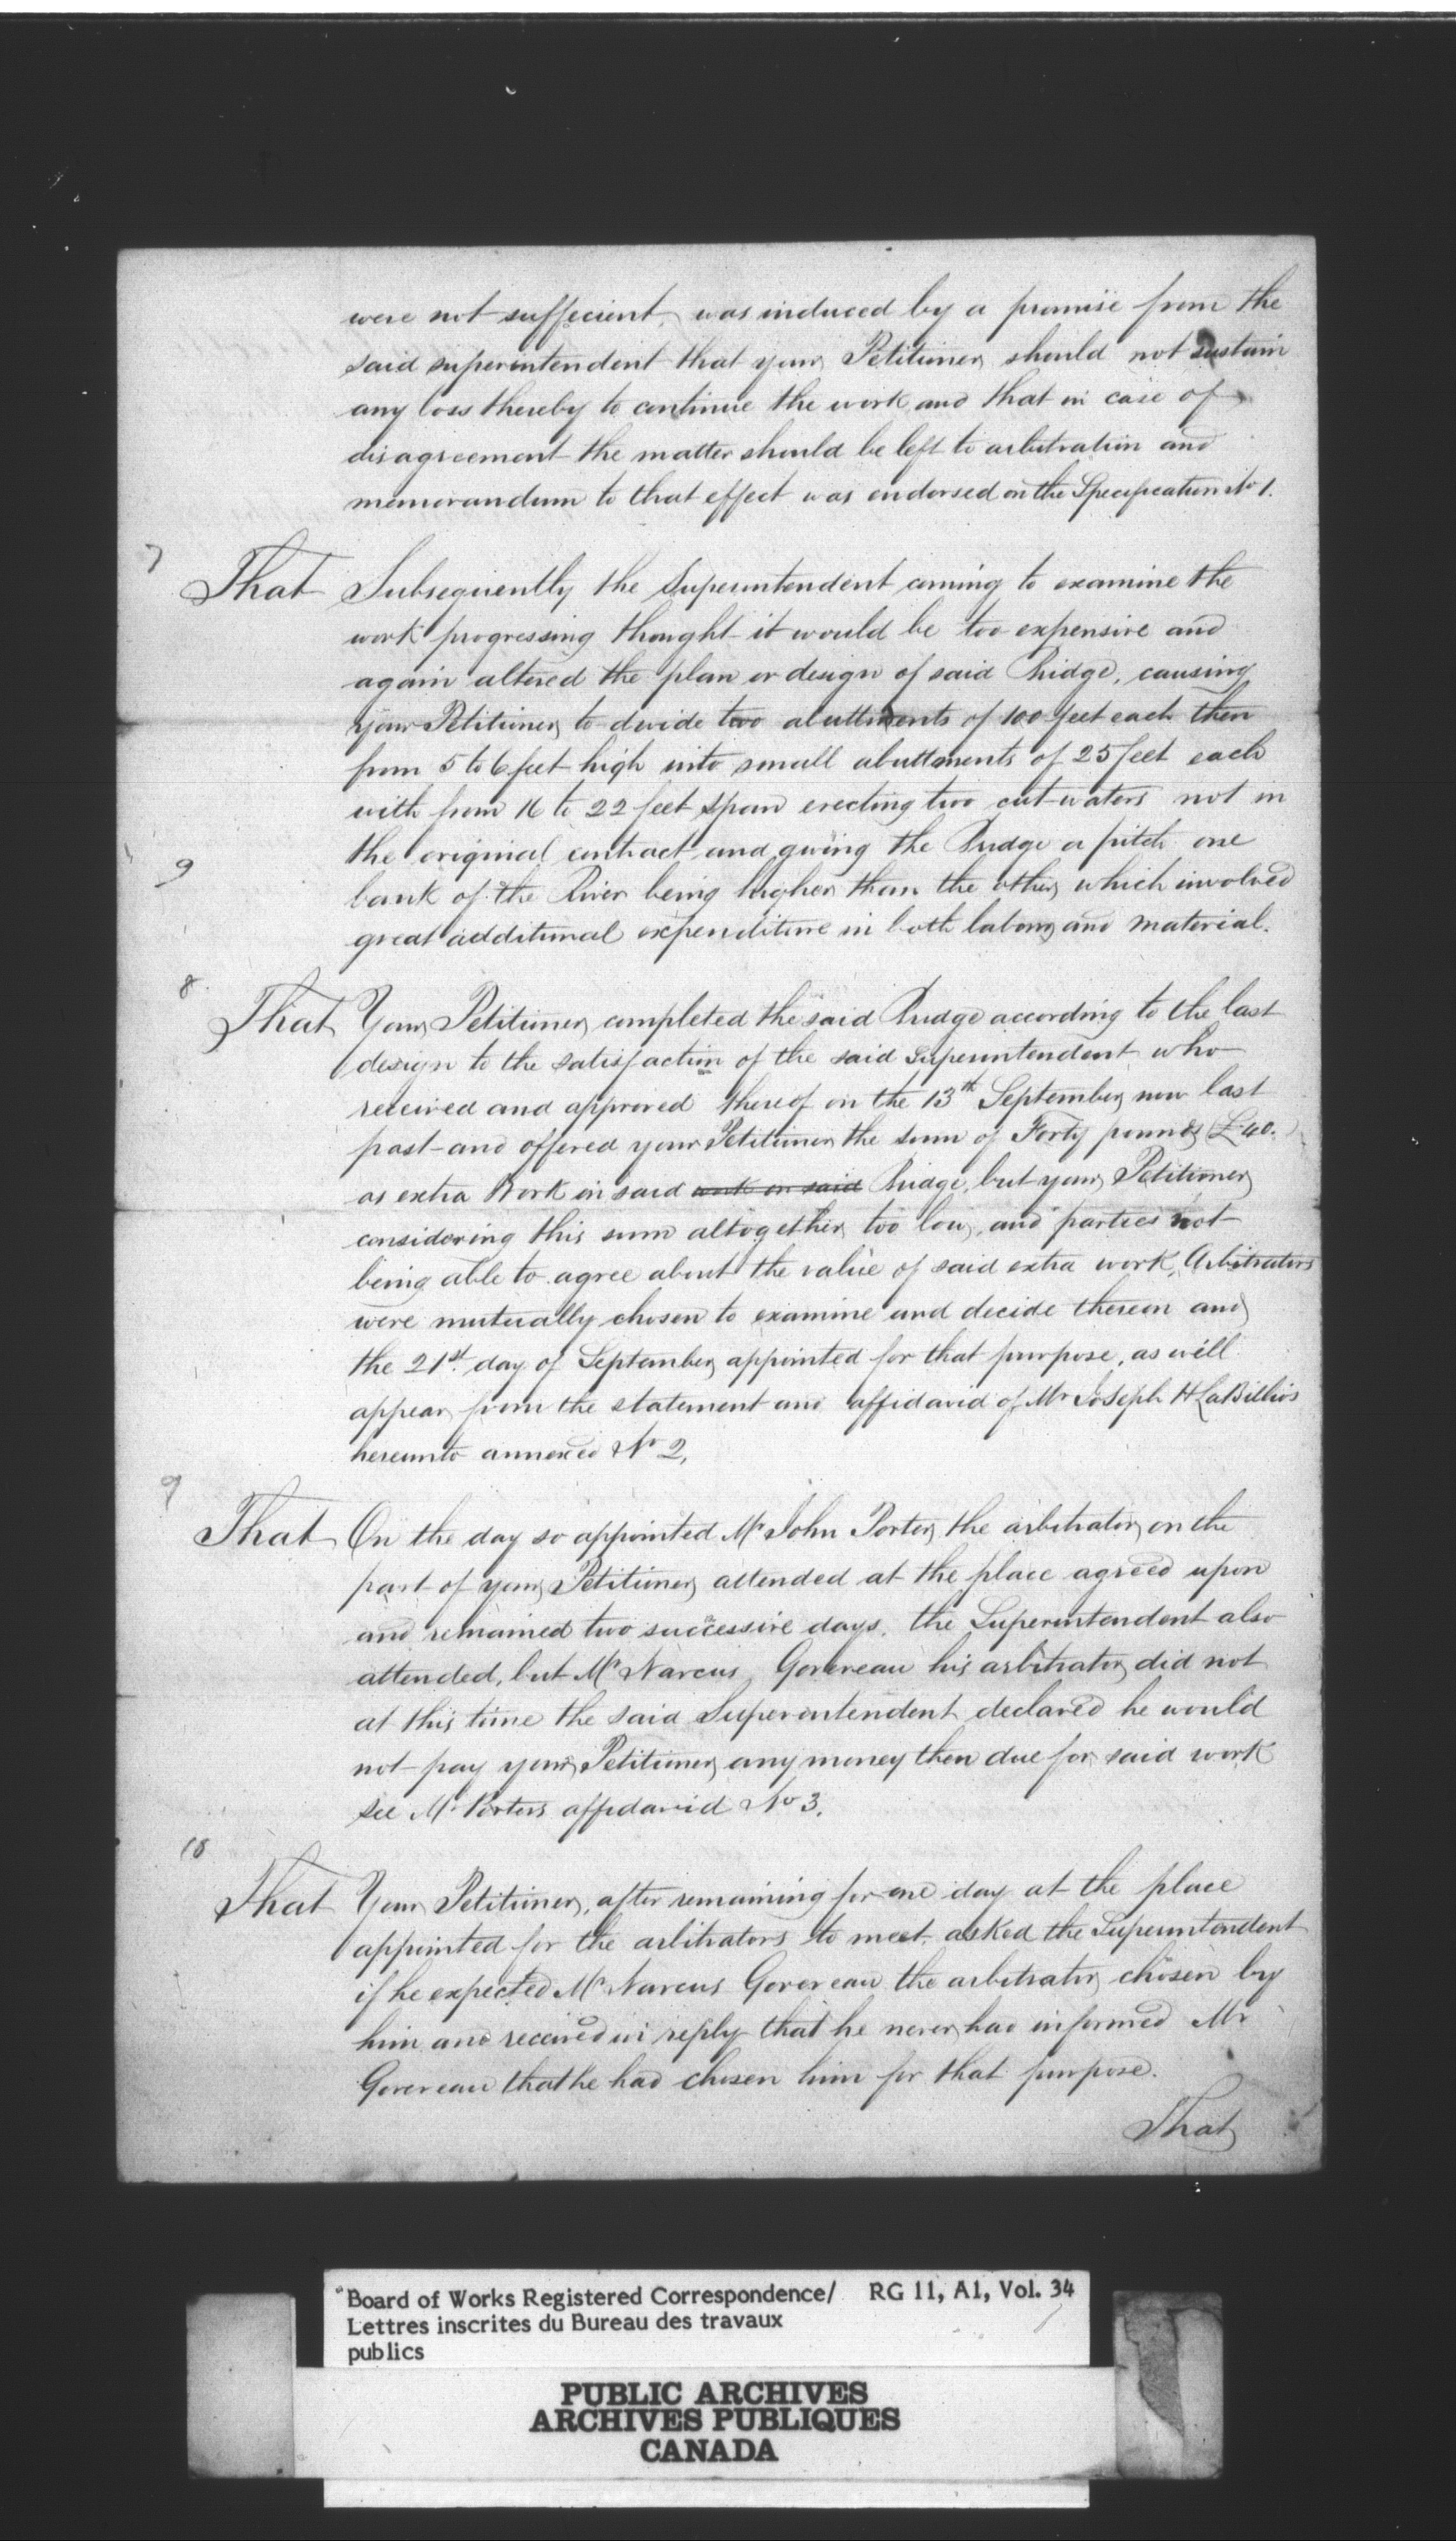 were not suffecient, was induced by a promise from the
said superintendent that your Petitioner should not sustain
any loss thereby to continue the work and that in case of
disagreement the matter should be left to arbitration and
memorandum to that effect was endorsed on the Specification No 1.
7
That Subsequently the Superintendent coming to examine the
work progressing thought it would be too expensive and
again altered the plan or design of said Bridge, causing
your Petitioner to devide two abuttments of 100 feet each then
from 5 to 6 feet high into small abuttments of 25 feet each
with from 16 to 22 feet span erecting two cutwaters not in
the original contract and giving the Bridge a pitch one
9
bank of the River being higher than the other, which involved
great additional expenditure in both labour and material.
8.
That Your Petitioner completed the said Bridge according to the last
design to the satisfaction of the said Superintendent who
received and approved thereof on the 13th September now last
past and offered your Petitioner the sum of Forty pounds (£40.)
as extra Work on said work on said Bridge, but your Petitioner
considering this sum altogether too low, and parties not
being able to agree about the value of said extra work, Arbitrators
were mutually chosen to examine and decide thereon and
the 21st day of September appointed for that purpose, as will
appear from the statement and affidavid of Mr Joseph H LaBillios
hereunto annexed No 2,
9
That On the day so appointed Mr John Porter, the arbitrator on the
part of your Petitioner attended at the place agreed upon
and remained two successive days. the Superintendent also
attended, but Mr Narcus Govereau his arbitrator did not
at this time the said Superintendent declared he would
not pay your Petitioner any money then due for said work
see Mr Porters affidavid No 3.
10
That Your Petitioner, after remaining for one day at the place
appointed for the arbitrators to meet, asked the Superintendent
if he expected Mr Narcus Govereau the arbitrator chosen by
him and received in reply that he never had informed Mr
Govereau that he had chosen him for that purpose.
That
"Board of Works Registered Correspondence/ RG 11, A1, Vol. 34
Lettres inscrites du Bureau des travaux
publics
PUBLIC ARCHIVES
ARCHIVES PUBLIQUES
CANADA